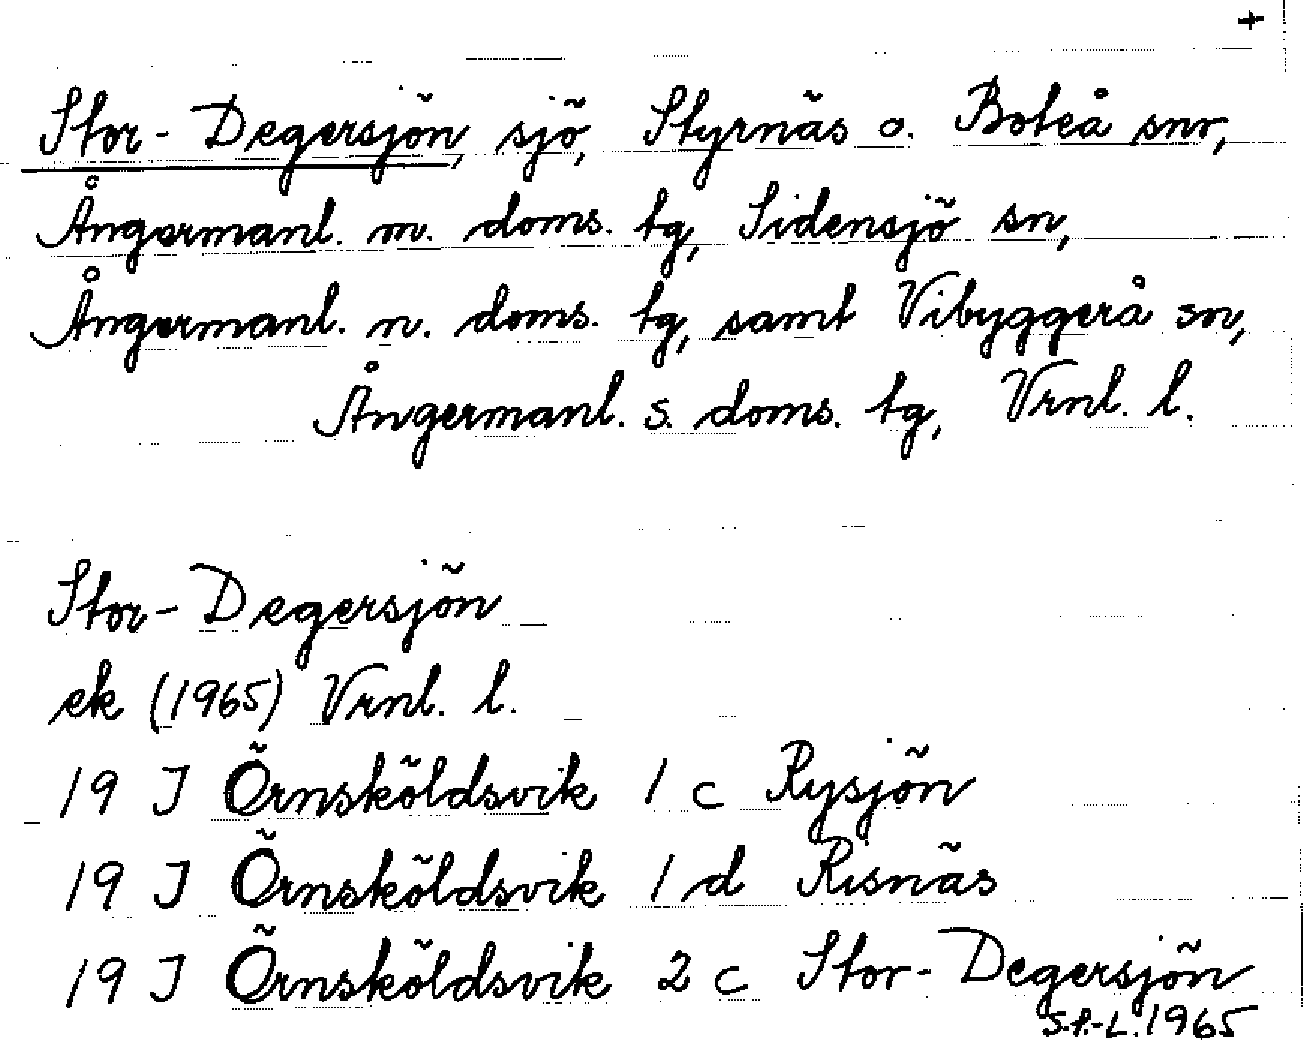 +
Stor-Degersjön, sjö, Styrnäs o. Boteå snr,
Ångermanl. m. doms. tg, Sidensjö sn,
Ångermanl. n. doms. tg, samt Vibyggerå sn,
Ångermanl. s. doms. tg, Vrnl. l.
Stor-Degersjön
ek (1965) Vrnl. l.
19 J Örnsköldsvik 1 c Rysjön
19 J Örnsköldsvik 1 d Risnäs
19 J Örnsköldsvik 2 c Stor-Degersjön
S.P.-L. 1965